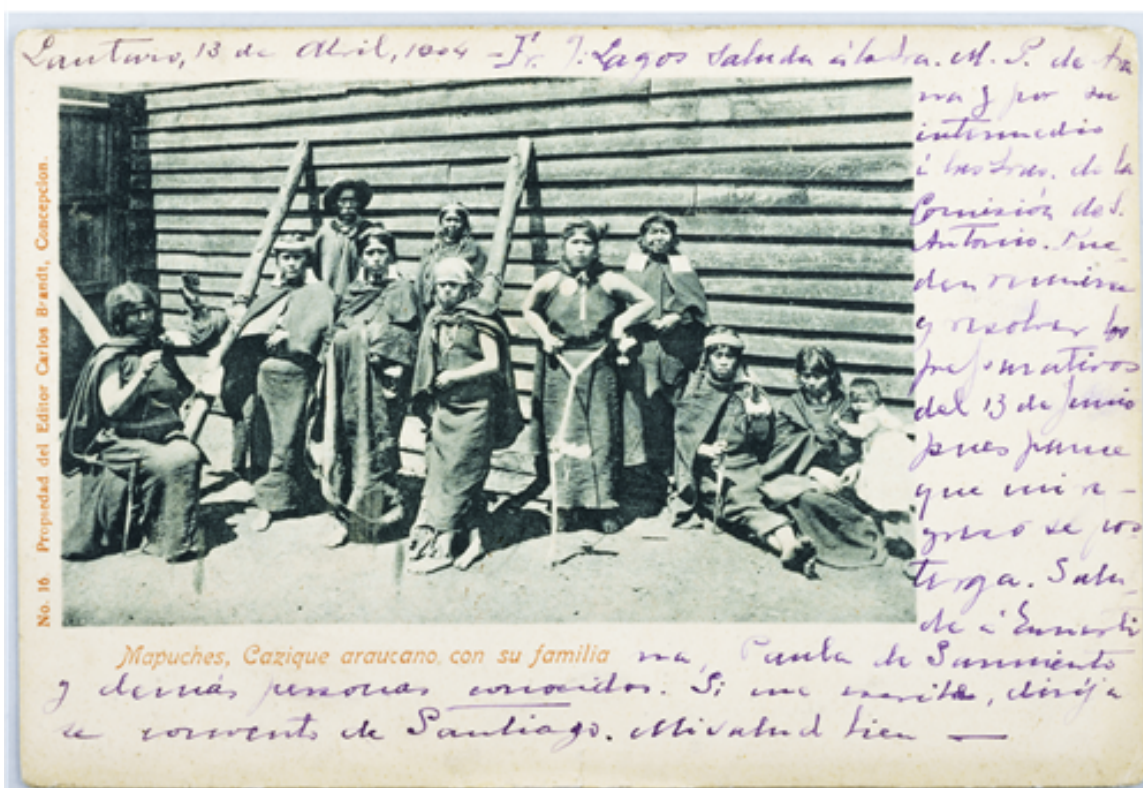 Lautaro, 13 de Abril, 1904 - Fr. J. Lagos saluda á la Sra. M. P. de Ara
na y por su
intermedio
á las Sras. de la
Comisión de S.
Antonio. Pue
den reunirse
y resolver los
preparativos
del 13 de Junio
pues parece
que mi re-
greso se pos
terga. Salu-
de á
na, Paula de Sarmiento
y demás personas conocidas. Si me escribe, dirija
se convento de Santiago. Mi salud bien —
No. 16 Propiedad del Editor Carlos Brandt, Concepcion.
Mapuches, Cazique araucano con su familia